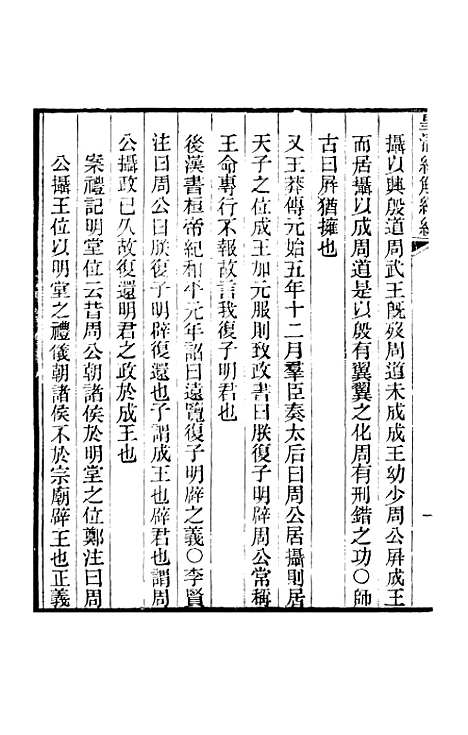 皇清經解續編
攝以興殷道周武王旣歿周道未成成王幼少周公屏成王
而居攝以成周道是以殷有翼翼之化周有刑錯之功○師
古曰屏猶擁也
又王莽傳元始五年十二月羣臣奏太后曰周公居攝則居
天子之位成王加元服則致政書曰朕復子明辟周公常稱
王命專行不報故言我復子明君也
後漢書桓帝紀和平元年詔曰遠覽復子明辟之義○李賢
注曰周公曰朕復子明辟復還也子謂成王也辟君也謂周
公攝政已久故復還明君之政於成王也
案禮記明堂位云昔周公朝諸侯於明堂之位鄭注曰周
公攝王位以明堂之禮儀朝諸侯不於宗廟辟王也正義
一